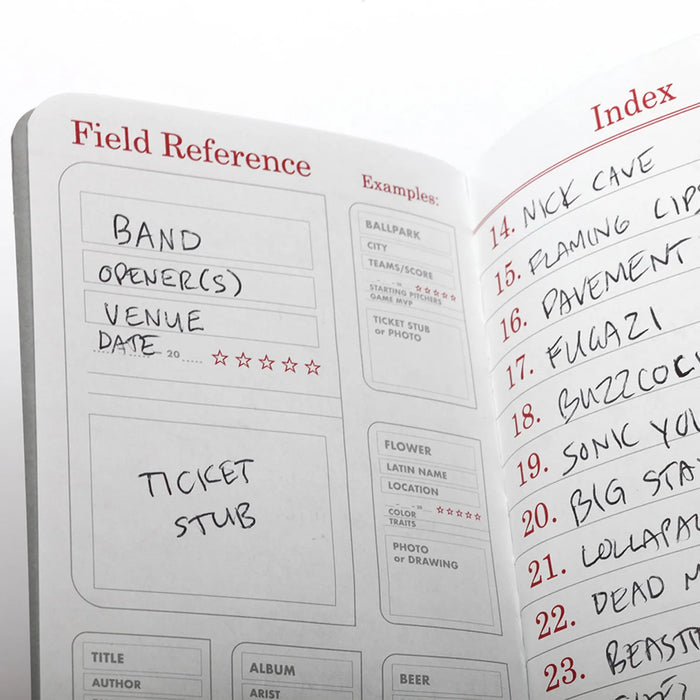 Field Reference
BAND
OPENER(S)
VENUE
DATE 20
TICKET
STUB
TITLE
AUTHOR
ALBUM
ARIST
Examples:
BALLPARK
CITY
TEAMS/SCORE
STARTING PITCHERS
GAME MVP
TICKET STUB
or PHOTO
FLOWER
LATIN NAME
LOCATION
COLOR
TRAITS
PHOTO
or DRAWING
BEER
Index
14. NICK CAVE
15. FLAMING LIPS
16. PAVEMENT
17. FUGAZI
18. BUZZCOC
19. SONIC YOU
20. BIG STA
21. LOLLAPAL
22. DEAD M
23. BEAST